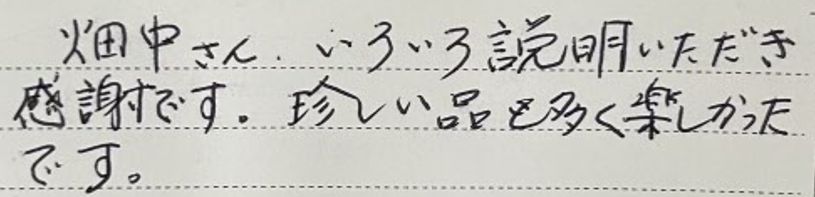 畑中さん、いろいろ説明いただき
感謝です。珍しい品も多く楽しかった
です。